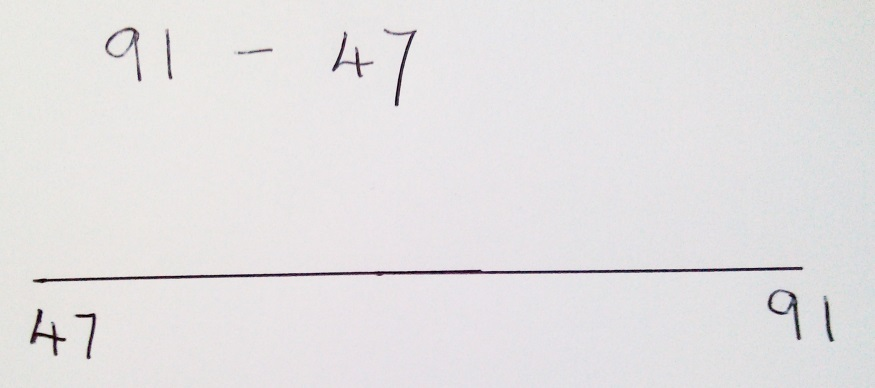 91 - 47
47 91